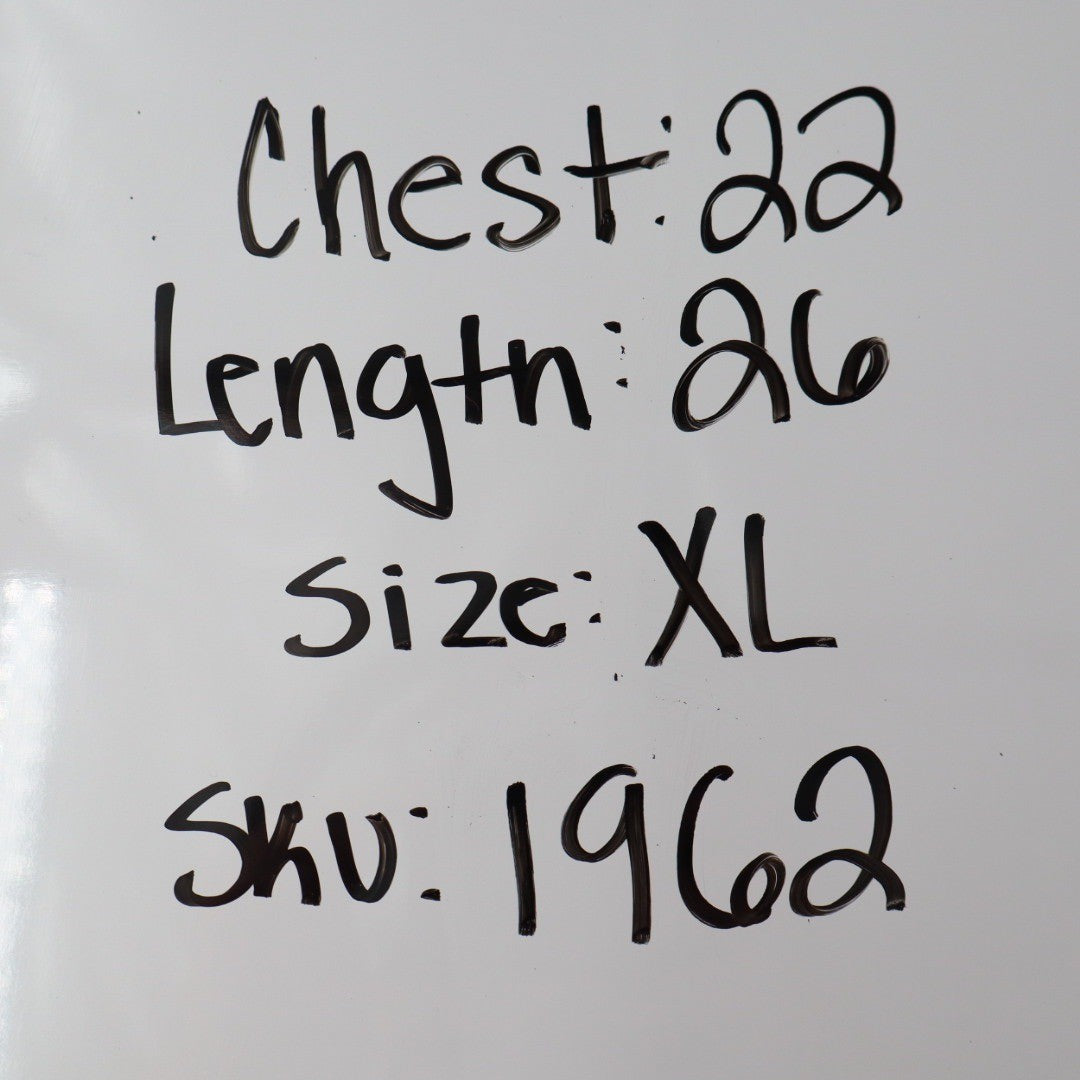 Chest: 22
Length: 26
Size: XL
SKU: 1962